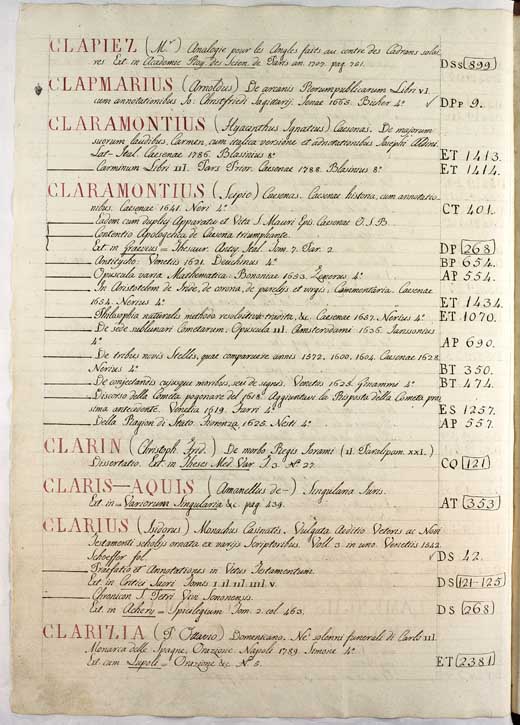 CLAPIEZ (Mr) Analogie pour les Angles faits au contre des Cadrans solai
res Est. in Academie Roy. des Scien. de Paris an. 1707. pag. 761. DSs 899
CLAPMARIUS (Arnoldus) De arcanis Rerumpublicarum Libri VI
cum annotationibus Jo: Christfridi Sagittarij. Jenae 1665. 4º DPp 9.
CLARAMONTIUS (Hyacinthus Ignatus) Caesenas. De majorum
suorum laudibus, Carmen, cum italica versione et adnotationibus Josephi Aldini.
Lat-Ital. Caesenae 1786. Blasinius 8º ET 1413.
Carminum Libri III. Pars Prior. Caesenae 1788. Blasinius 8º ET 1414.
CLARAMONTIUS (Scipio) Caesenas. Caesenae historia, cum annotatio-
nibus. Caesenae 1641. Neri 4º CT 401.
Eadem cum duplici Apparatu et Vita S. Mauri Epis. Caesenae O.S.B.
Contentio Apologetica de Caesena triumphante.
Est in Graevius = Thesaur. Antiq. Ital. Tom. 7. Par. 2. DP 268
Antitycho. Venetiis 1621. Deuchinus 4º BP 654.
Opuscula varia Mathematica. Bononiae 1653. Zenerus 4º AP 554.
In Aristotelem de Iride, de corona, de pareliis et virgis, Commentaria. Caesenae
1654. Nerius 4º ET 1434.
Philosophia naturalis methodo resolutiva tradita, &c. Caesenae 1657. Nerius 4º ET 1070.
De sede sublunari Cometarum; Opuscula III. Amsterodami 1636. Janssonius
4º AP 690.
De tribus novis Stellis, quae comparuere annis 1572. 1600. 1604. Caesenae 1628.
Nerius 4º BT 350.
De conjectandis cujusque moribus, seu de signis. Venetiis 1625. Ginammi 4º BT 474.
Discorso della Cometa pogonare del 1618. Aggiuntavi la Risposta della Cometa pros
sima antecedente. Venetia 1619. Sarri 4º ES 1257.
Della Ragion di Stato. Fiorenza 1625. Nesti 4º AP 557.
CLARIN (Christoph. Frid.) De morbo Regis Jorami (II. Paralipom. XXI.)
Dissertatio. Est. in Theses Med Var T. 3. Nº 27. CQ 121
CLARIS-AQUIS (Amanellus de-) Singularia Juris.
Est in = Variorum Singularia &c. pag. 439. AT 353
CLARIUS (Isidorus) Monachus Casinatis. Vulgata Aeditio Veteris ac Novi
Testamenti scholijs ornata ex varijs Scriptoribus. Voll. 3. in uno. Venetiis 1542
Schoeffer fol. DS 42.
Praefatio et Annotationes in Vetus Testamentum.
Est. in Critici Sacri Tomis I. II. III. IIII. V. DS 121-125
Chronicon S. Petri Vivi Senonensis.
Est. in Acherij = Spicilegium Tom. 2. col. 463. DS 268
CLARIZIA (P. Ottavio) Domenicano. Ne' solenni funerale di Carlo III.
Monarca delle Spagne, Orazione. Napoli 1789. Simone 4º
Est cum Lupoli = Orazione &c. Nº 5. ET 2381